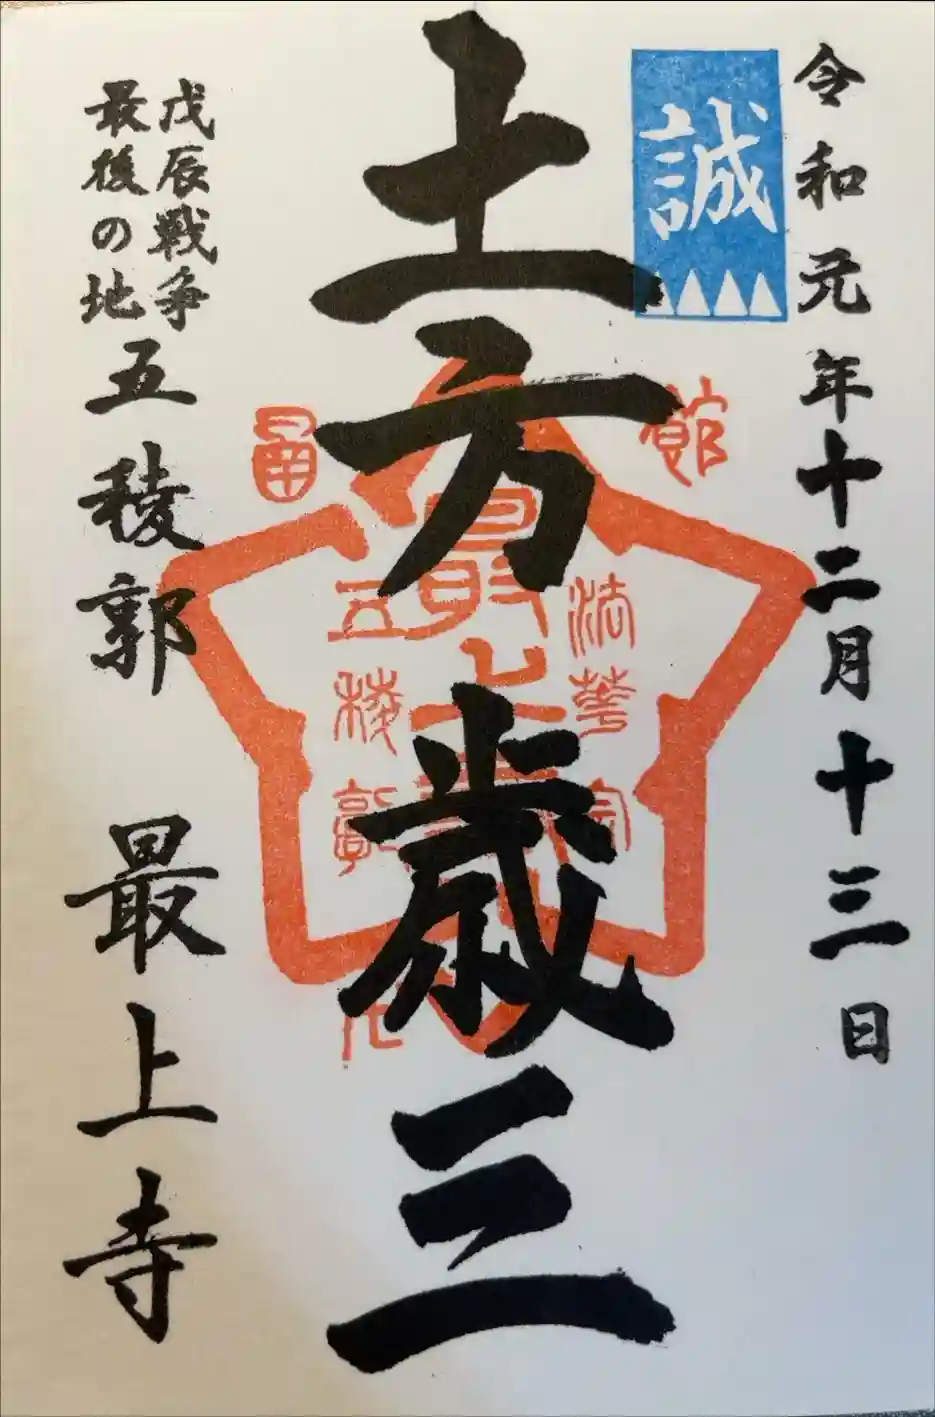 令和元年十二月十三日
誠
土方歳三
戊辰戦争
最後の地
五稜郭 最上寺
法華宗
最上寺
五稜郭